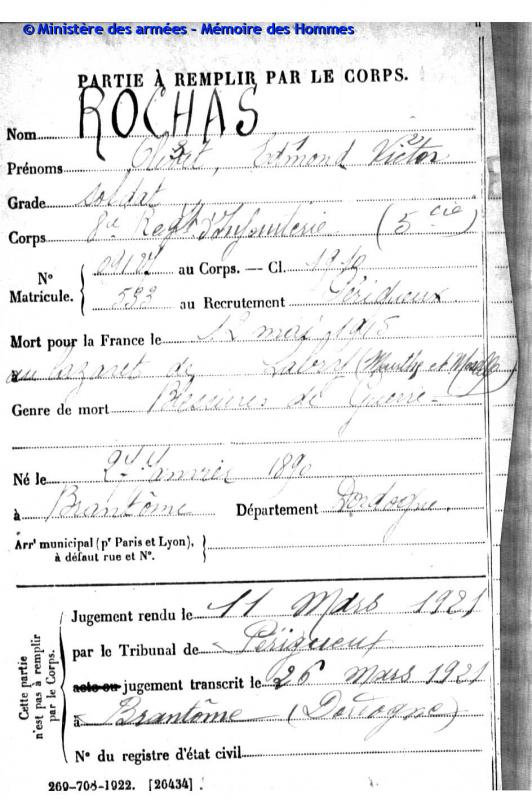 © Ministère des armées - Mémoire des Hommes
PARTIE À REMPLIR PAR LE CORPS.
Nom ROCHAS
Prénoms Edmond Victor
Grade Soldat
Corps 8e Regt d'Infanterie (5 cie)
N° Matricule. { au Corps. — Cl. 1910
533 au Recrutement Périgueux
Mort pour la France le 12 mai 1915
à au Lazaret de (Meurthe et Moselle)
Genre de mort Blessures de Guerre
Né le 24 Janvier 1890
à Brantôme Département Dordogne.
Arrt municipal (pr Paris et Lyon), à défaut rue et N°. }
Cette partie n'est pas à remplir par le Corps.
Jugement rendu le 11 Mars 1921
par le Tribunal de Périgueux
acte ou jugement transcrit le 26 Mars 1921
à Brantôme (Dodogne)
N° du registre d'état civil
269-708-1922. [26434] .